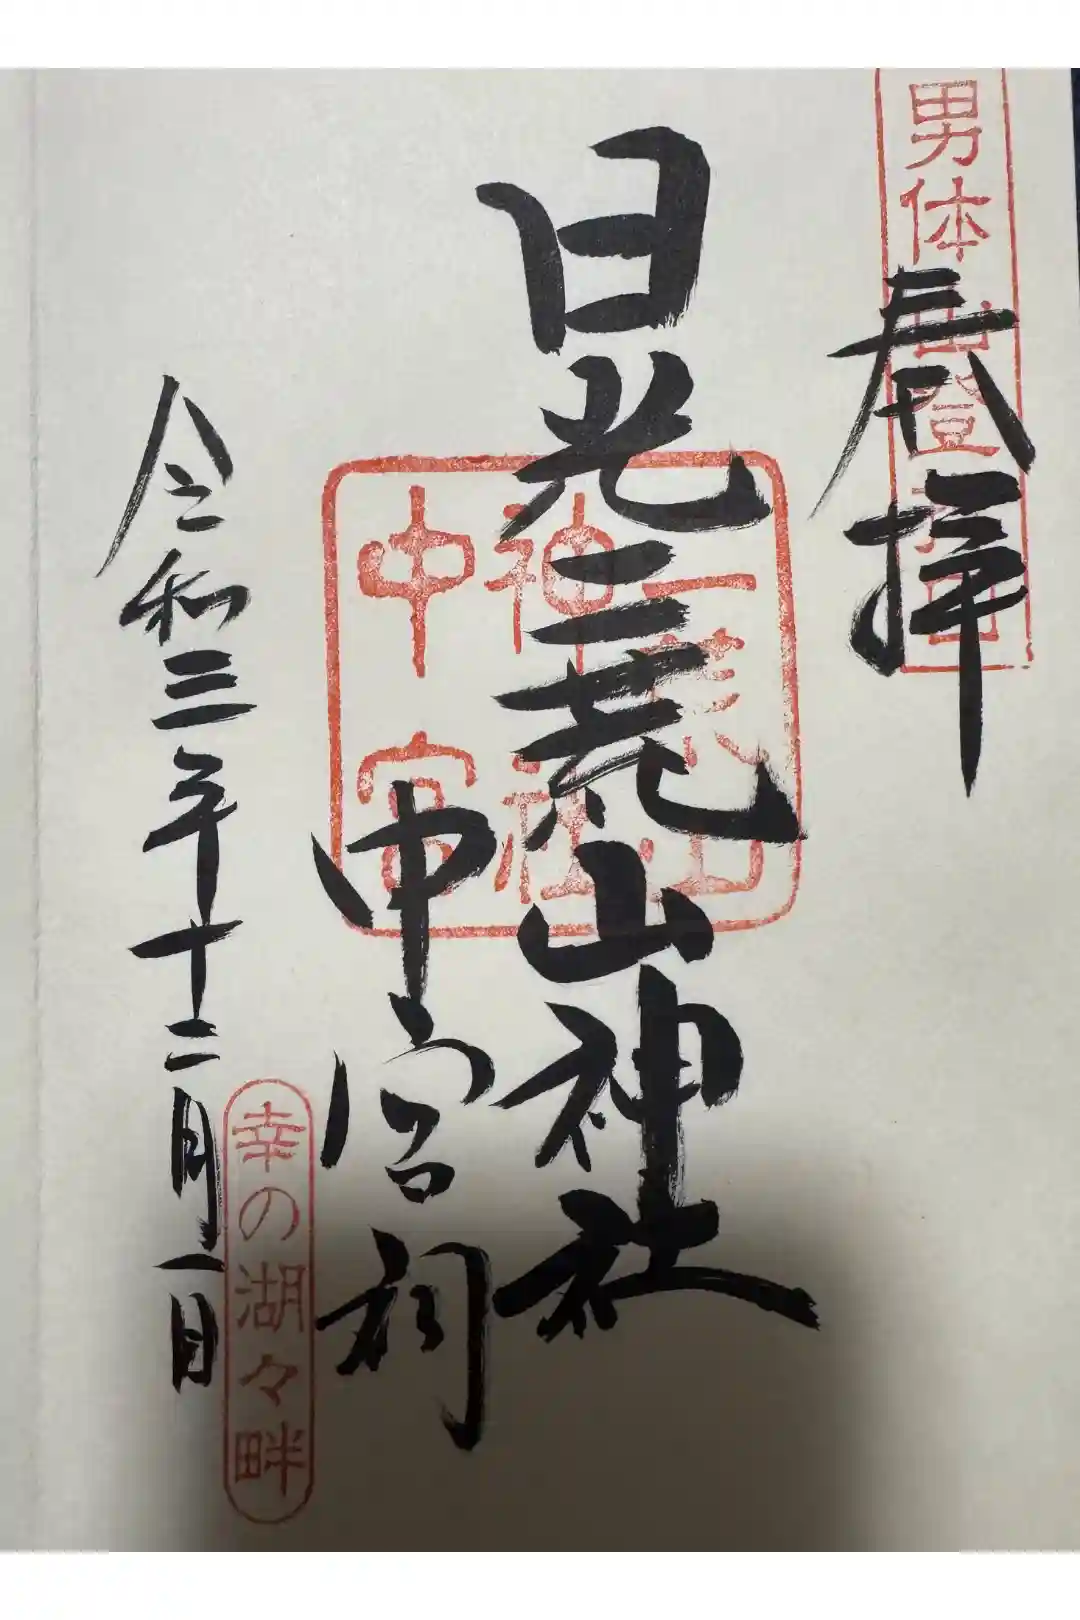 男体山登拝口
奉拝
日光二荒山神社
中宮祠
二荒山
神社
中宮
幸の湖々畔
令和三年十二月一日